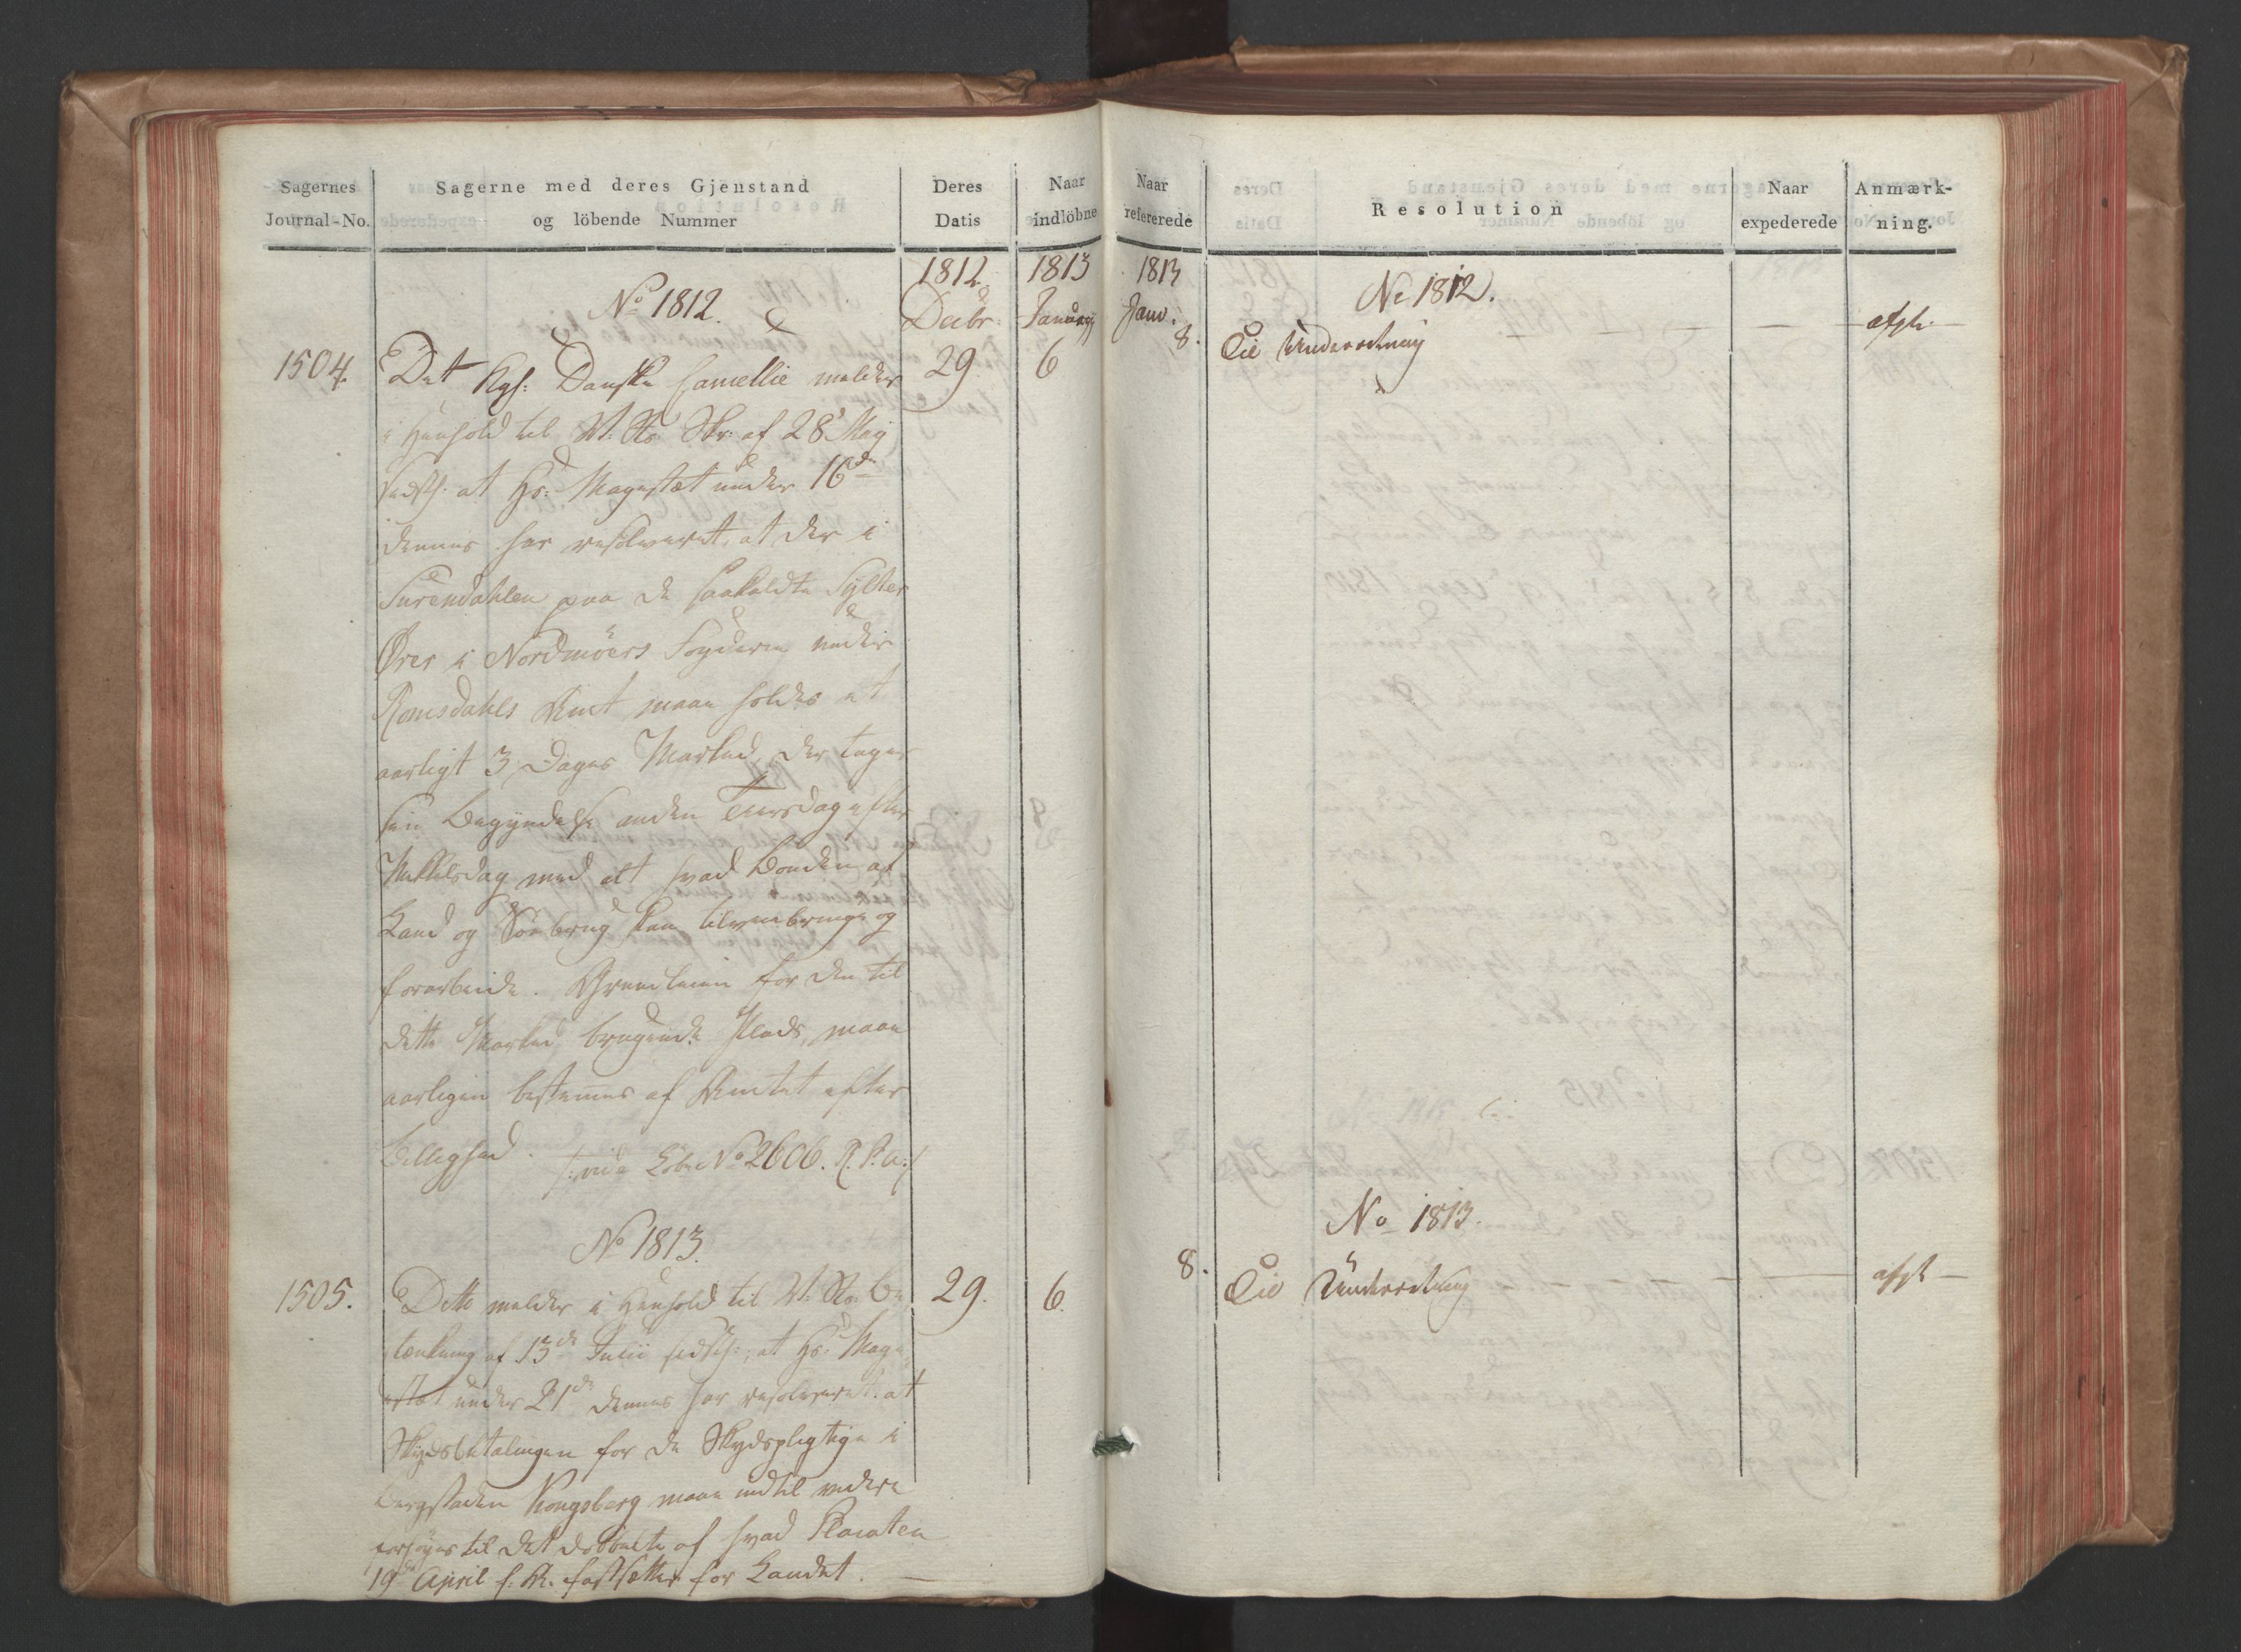 Sagernes
Journal-No.
Sagerne med deres Gjenstand
og löbende Nummer
Deres
Datis
Naar
indlöbne
1812
Decbr.
1813
January
No 1812.
1504. Det Kgl: Danske Cancellie melder 29 6
i Henhold til Skr: af 28 Maj
sidstl: at Hs: Majestæt under 16de
dennes har resolveret, at der i
Surendahlen paa de saakaldte Sylthe
Örer i Nordmöers Fogderie under
Romsdahls Amt maae holdes et
aarligt 3 Dages Marked, der tager
sin Begyndelse anden Tiirsdag efter
Mikkelsdag med alt hvad Bonden af
Land og Söe brug kan tilveiebringe og
forarbeide. Grundleien for den til
dette Marked brugende Plads, maae
aarligen bestemmes af Amtet efter
Billighed. /: vide Löbe No 2606. R. P. a:/
No 1813.
1505. Dette melder i Henhold til Be 29. 6.
tænkning af 13de Julii sidstl:, at Hs: Maje
stæt under 21de dennes har resolveret: at
Skydsbetalingen for de Skydspligtige i
Bergstaden Kongsberg maae indtil videre
forhöyes til det dobbelte af hvad Placaten
19de April f: A. fastsætter for Landet.
Naar
refererede
Resolution
Naar
expederede
Anmærk-
ning.
1813
Janv.
No 1812.
8. Til Underretning afgh.
No 1813.
8. Til Underretning afgh